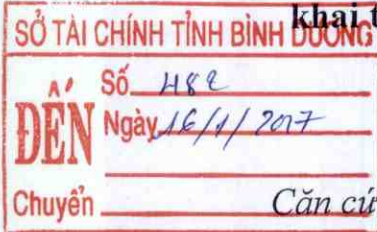 khai t
SỞ TÀI CHÍNH TỈNH BÌNH DƯƠNG
ĐẾN
Số 482
Ngày 16/1/2017
Chuyển
Căn cứ